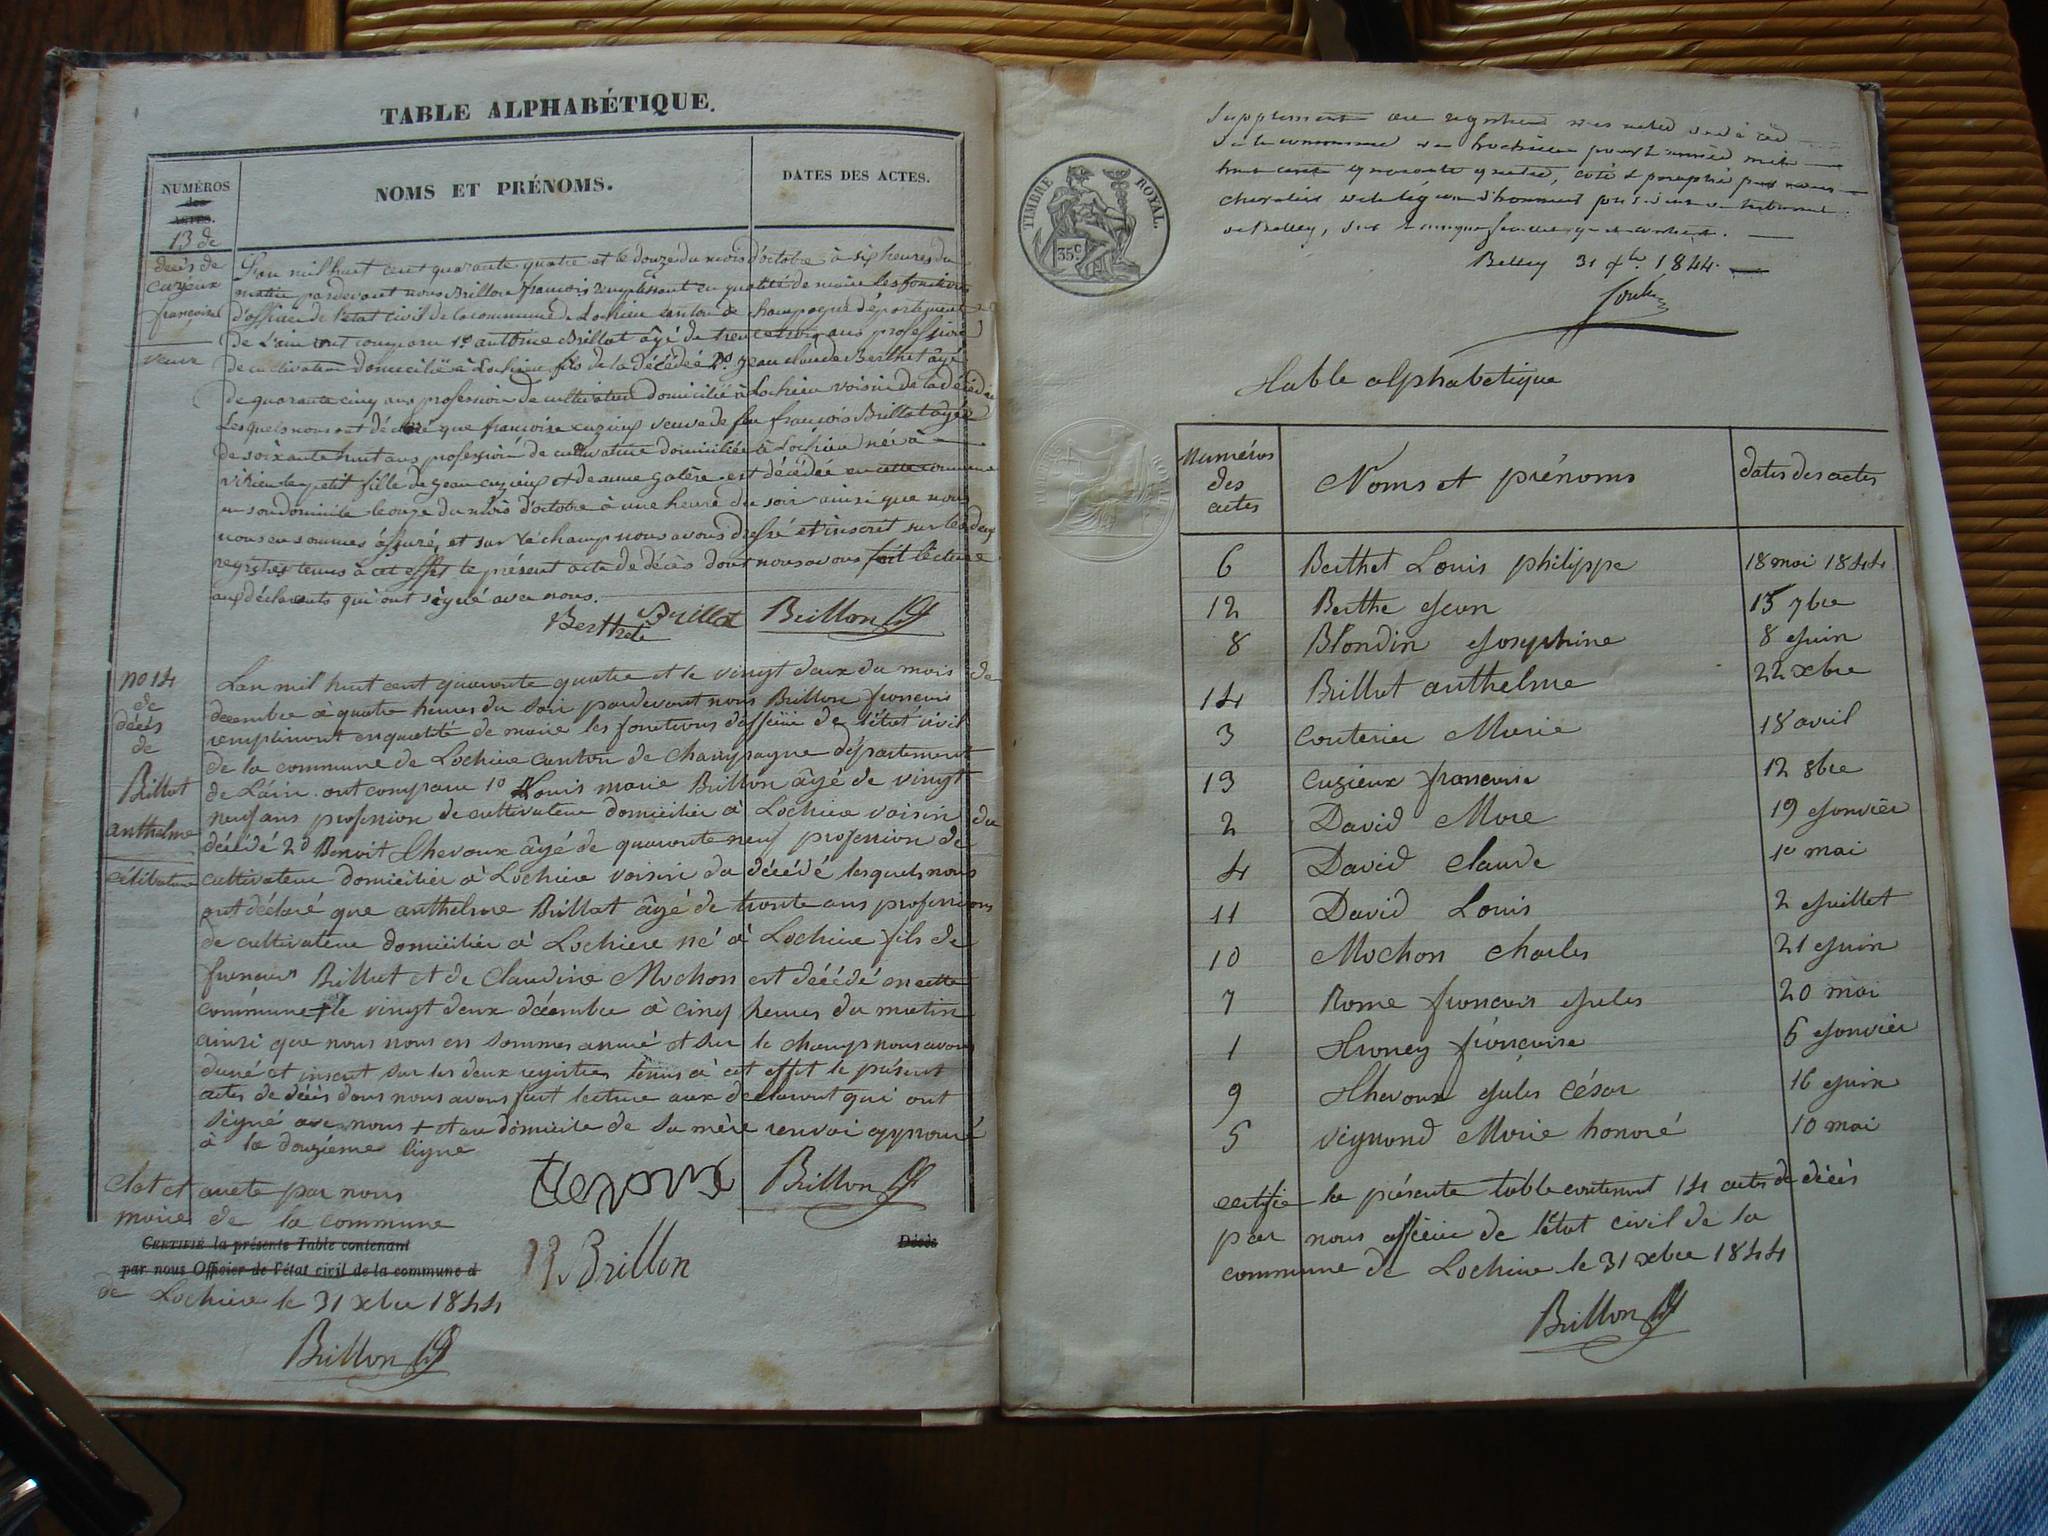 TABLE ALPHABÉTIQUE.
NUMÉROS
des
ACTES.
NOMS ET PRÉNOMS.
DATES DES ACTES.
13 de
décès de
cuzieux
françoise
veuve
L'an mil huit cent quarante quatre et le douze du mois d'octobre à six heures du
matin pardevant nous Brillon françois remplissant en qualité de maire les fonctions
d'officier de l'état civil de la commune de Lochieu canton de champagne département
de L'ain ont comparu 1º antoine Brillat âgé de trente trois ans profession
de cultivateur domicilié à Lochieu fils de la décédée 2º jean claude Berthet âgé
de quarante cinq ans profession de cultivateur domicilié à Lochieu voisin de la décédée
Lesquels nous ont déclaré que françoise cuzieux veuve de feu françois Brillat âgée
de soixante huit ans profession de cultivature domiciliée à Lochieu née à
virieu le petit fille de jean cuzieux et de anne galère est décédée en cette commune
en son domicile le onze du mois d'octobre à une heure du soir ainsi que nous
nous en sommes assuré, et sur le champ nous avons dressé et inscret sur les deux
registres tenus à cet effet le présent acte de décès dont nous avons fait lecture
aux déclarants qui ont signé avec nous.
Berthet Brillat Brillon
no 14
de
décès
de
Brillat
anthelme
célibataire
Lan mil huit cent quarante quatre et le vingt deux du mois de
décembre à quatre heures du soir pardevant nous Brillon francois
remplissant en qualité de maire les fonctions dofficier de l'état civil
de la commune de Lochieu canton de Champagne département
de Lain ont comparu 1º Louis marie Brillon âgé de vingt
neuf ans profession de cultivateur domicilier à Lochieu voisin du
décédé 2º Benoit Thevoux âgé de quarante neuf profession de
cultivateur domicilier à Lochieu voisin du décédé lesquels nous
ont déclaré que anthelme Brillat âgé de trente ans profession
de cultivateur domicilier à Lochieu né à Lochieu fils de
francois Brillat et de Claudine Mochon est décédé en cette
commune + le vingt deux décembre à cinq heures du matin
ainsi que nous nous en sommes assuré et sur le champ nous avons
dressé et inscrit sur les deux registres tenus à cet effet le présent
actes de décès dont nous avons fait lecture aux déclarant qui ont
signé avec nous + et au domicile de sa mère renvoi approuvé
à la douzième ligne
Thevoux Brillon
Clot et arrete par nous
maire de la commune
CERTIFIÉ la présente Table contenant
Décès
par nous Officier de l'état civil de la commune d
de Lochieu le 31 xbre 1844
Brillon
Brillon
TIMBRE ROYAL
35 C
Supplement au registre des actes de décès
de la commune de Lochieu pour l'année mil
huit cent quarante quatre, coté & paraphé par nous
chevalier de la légion d'honneur président du tribunal
de Belley,
Belley 31 1844
Table alphabetique
Numéros
des
actes
Noms et prénoms
dates des actes
6 Berthet Louis philippe 18 mai 1844
12 Berthe Jean 15 7bre
8 Blondin Josephine 8 Juin
14 Brillat anthelme 22 xbre
3 Couterier Marie 18 avril
13 Cuzieux francoise 12 8bre
2 David Marie 19 Janvier
4 David Claude 10 mai
11 David Louis 2 Juillet
10 Mochon Charles 21 Juin
7 Rome francois Jules 20 mai
1 Troney francoise 6 Janvier
9 Thevoux Jules César 16 Juin
5 Vignond Marie honoré 10 mai
certifie la présente table contenant 14 actes de décès
par nous officier de l'état civil de la
commune de Lochieu le 31 xbre 1844
Brillon